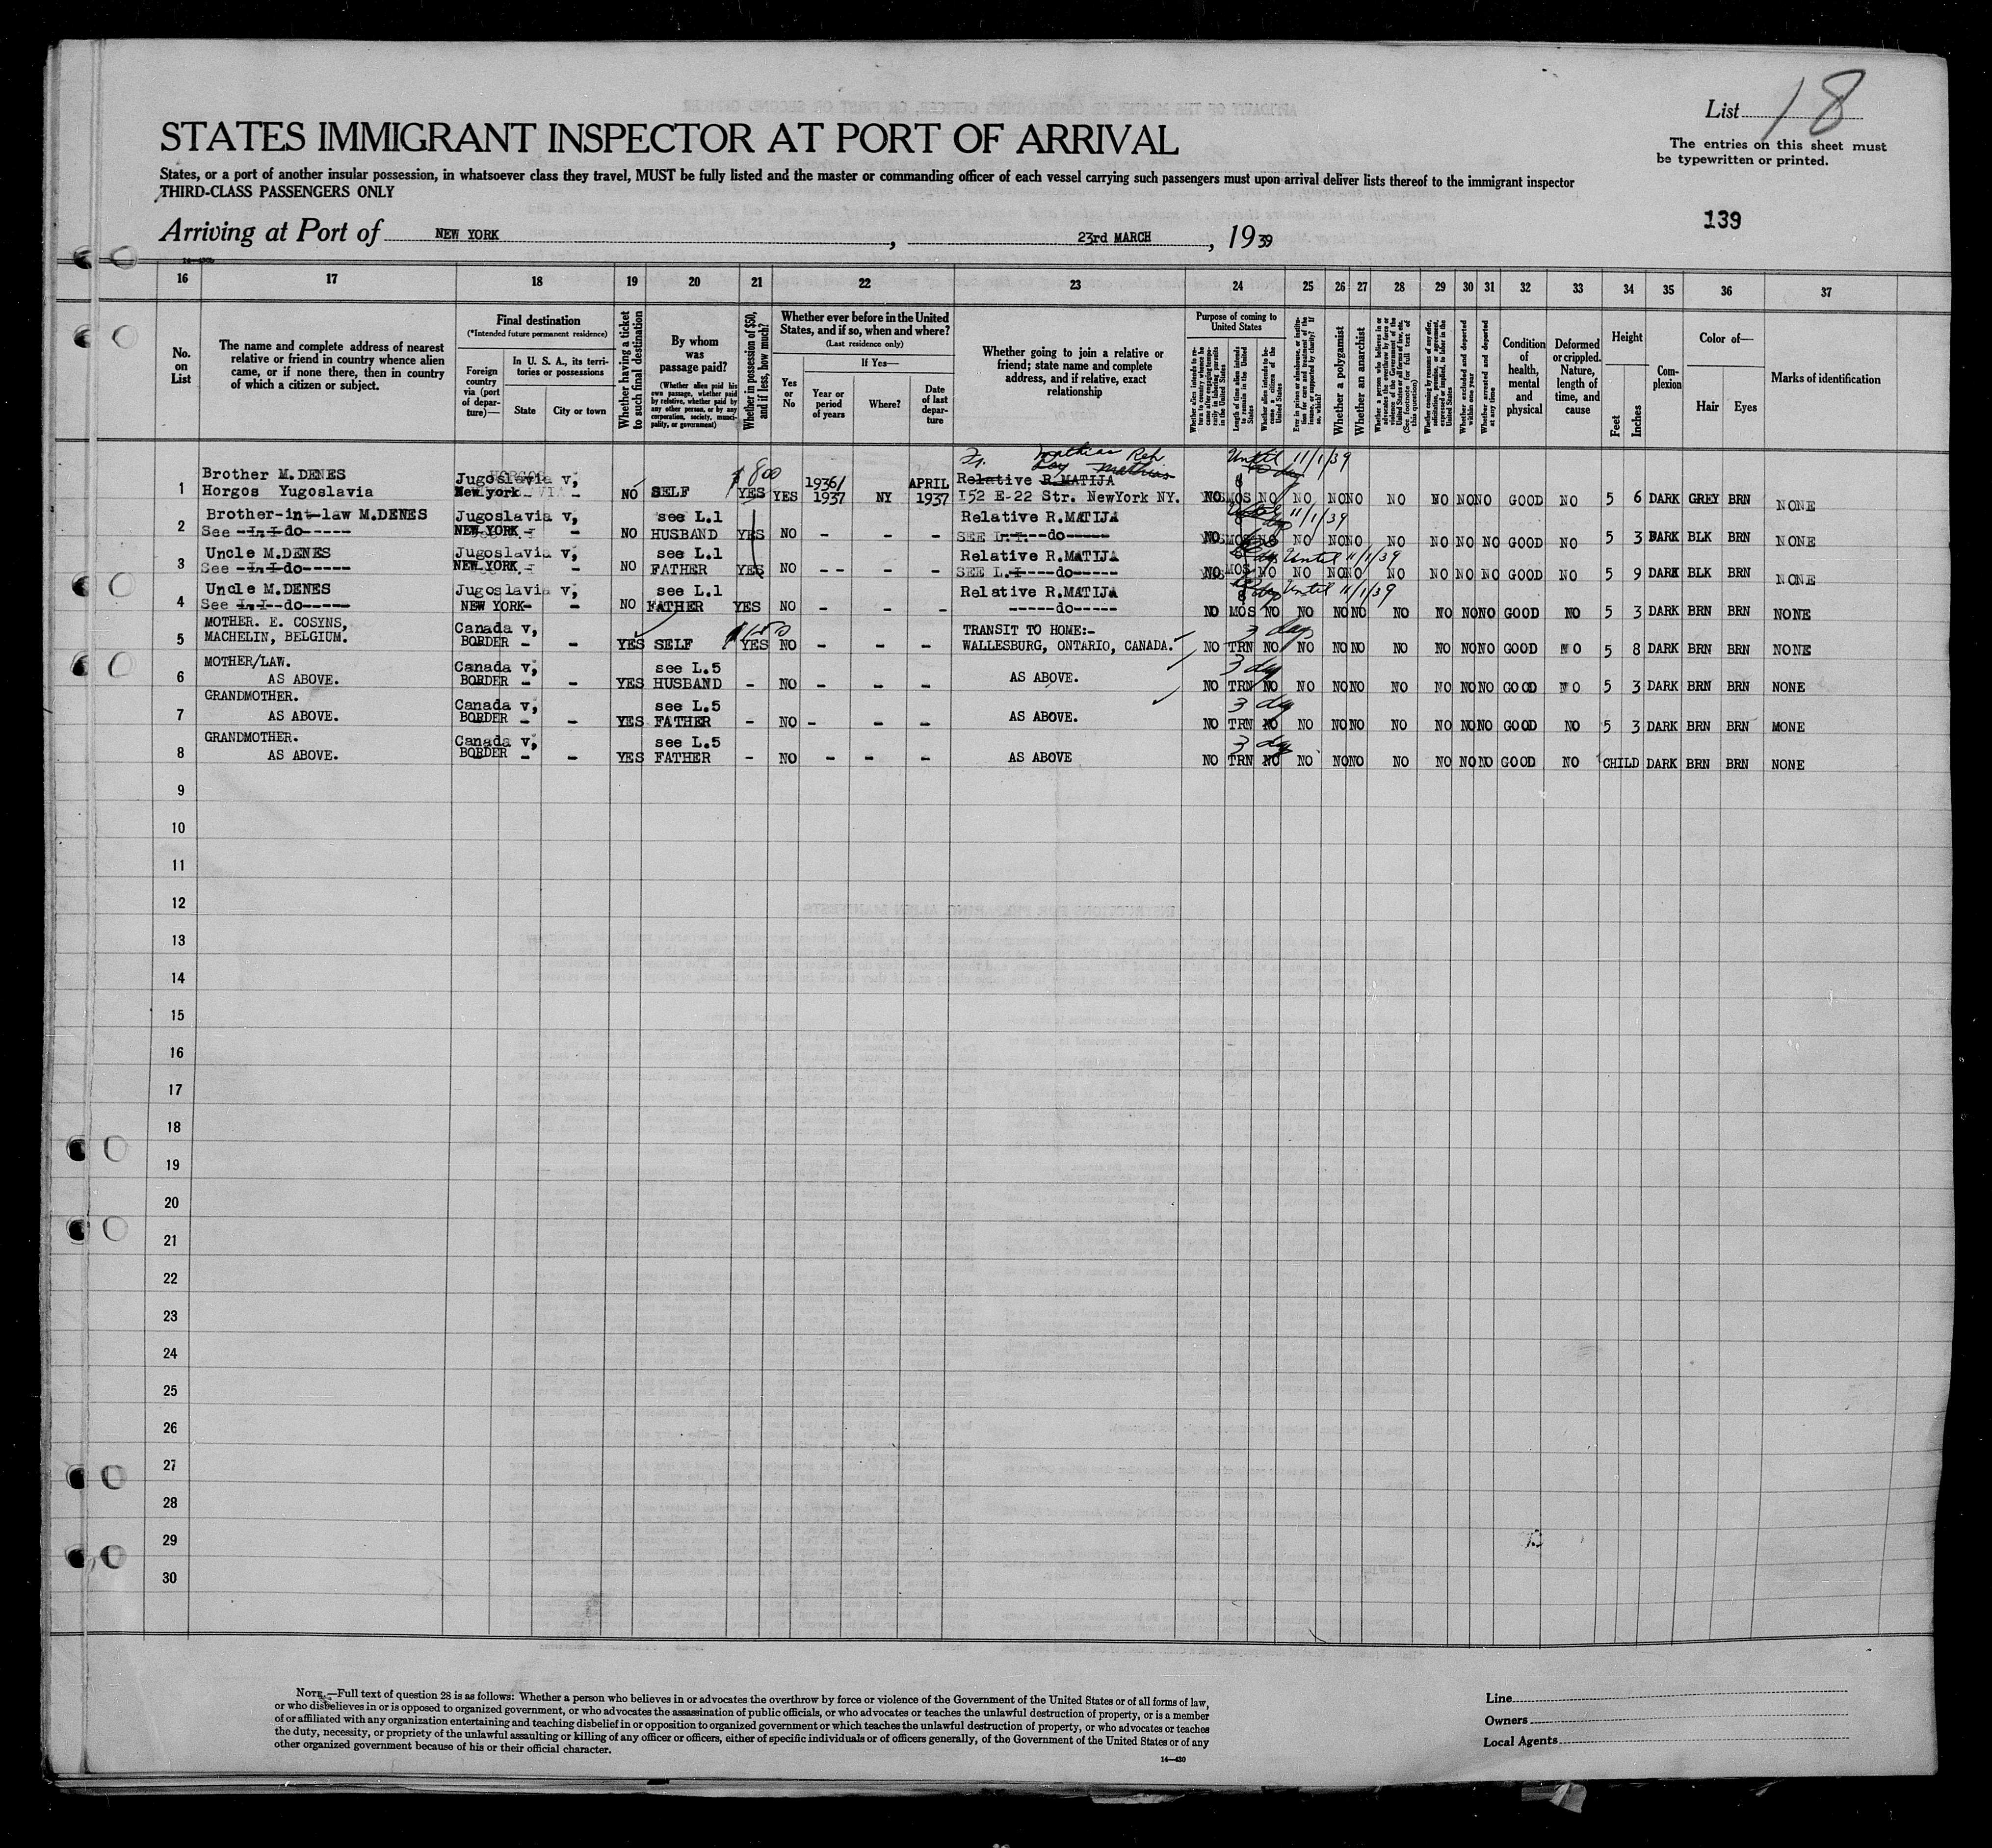 List 18
STATES IMMIGRANT INSPECTOR AT PORT OF ARRIVAL
The entries on this sheet must
be typewritten or printed.
States, or a port of another insular possession, in whatsoever class they travel, MUST be fully listed and the master or commanding officer of each vessel carrying such passengers must upon arrival deliver lists thereof to the immigrant inspector
THIRD-CLASS PASSENGERS ONLY
139
Arriving at Port of NEW YORK, 23rd MARCH, 1939
16 17 18 19 20 21 22 23 24 25 26 27 28 29 30 31 32 33 34 35 36 37
No. on List
The name and complete address of nearest
relative or friend in country whence alien
came, or if none there, then in country
of which a citizen or subject.
Final destination
(*Intended future permanent residence)
Foreign country via (port of departure)—
In U. S. A., its territories or possessions
State
City or town
Whether having a ticket to such final destination
By whom was passage paid?
(Whether alien paid his own passage, whether paid by relative, whether paid by any other person, or by any corporation, society, municipality, or government)
Whether in possession of $50, and if less, how much?
Whether ever before in the United States, and if so, when and where?
(Last residence only)
Yes or No
If Yes—
Year or period of years
Where?
Date of last departure
Whether going to join a relative or
friend; state name and complete
address, and if relative, exact
relationship
Purpose of coming to United States
Length of time alien intends to remain in the United States
Whether alien intends to become a citizen of the United States
Whether a polygamist
Whether an anarchist
Whether excluded and deported within one year
Whether arrested and deported at any time
Condition of health, mental and physical
Deformed or crippled. Nature, length of time, and cause
Height
Feet
Inches
Complexion
Color of—
Hair
Eyes
Marks of identification
1 Brother M.DENES Jugoslavia v, $800 1936/ APRIL Relative R.MATIJA Until 11/1/39
Horgos Yugoslavia New york NO SELF YES YES 1937 NY 1937 152 E-22 Str. NewYork NY. NO MOS NO NO NO NO NO NO NO NO GOOD NO 5 6 DARK GREY BRN NONE
2 Brother-int-law M.DENES Jugoslavia v, see L.1 Relative R.MATIJA 11/1/39
See -L.I-do----- NEW YORK - NO HUSBAND YES NO - - - SEE L.I.---do----- NO MOS NO NO NO NO NO NO NO NO GOOD NO 5 3 DARK BLK BRN NONE
3 Uncle M.DENES Jugoslavia v, see L.1 Relative R.MATIJA Until 11/1/39
See -L.I-do----- NEW YORK - NO FATHER YES NO -- - - SEE L.I----do----- NO MOS NO NO NO NO NO NO NO NO GOOD NO 5 9 DARK BLK BRN NONE
4 Uncle M.DENES Jugoslavia v, see L.1 Relative R.MATIJA Until 11/1/39
See -L.I--do----- NEW YORK- - NO FATHER YES NO - - - -----do----- NO MOS NO NO NO NO NO NO NO NO GOOD NO 5 3 DARK BRN BRN NONE
5 MOTHER. E. COSYNS, Canada v, TRANSIT TO HOME:- 3 days
MACHELIN, BELGIUM. BORDER - - YES SELF YES NO - - - WALLESBURG, ONTARIO, CANADA. NO TRN NO NO NO NO NO NO NO NO GOOD NO 5 8 DARK BRN BRN NONE
6 MOTHER/LAW. Canada v, see L.5 3 days
AS ABOVE. BORDER - - YES HUSBAND - NO - - - AS ABOVE. NO TRN NO NO NO NO NO NO NO NO GOOD NO 5 3 DARK BRN BRN NONE
7 GRANDMOTHER. Canada v, see L.5 3 days
AS ABOVE. BORDER - - YES FATHER - NO - - - AS ABOVE. NO TRN NO NO NO NO NO NO NO NO GOOD NO 5 3 DARK BRN BRN MONE
8 GRANDMOTHER. Canada v, see L.5 3 days
AS ABOVE. BORDER - - YES FATHER - NO - - - AS ABOVE NO TRN NO NO NO NO NO NO NO NO GOOD NO CHILD DARK BRN BRN NONE
9
10
11
12
13
14
15
16
17
18
19
20
21
22
23
24
25
26
27
28
29
30
NOTE.—Full text of question 28 is as follows: Whether a person who believes in or advocates the overthrow by force or violence of the Government of the United States or of all forms of law,
or who disbelieves in or is opposed to organized government, or who advocates the assassination of public officials, or who advocates or teaches the unlawful destruction of property, or is a member
of or affiliated with any organization entertaining and teaching disbelief in or opposition to organized government or which teaches the unlawful destruction of property, or who advocates or teaches
the duty, necessity, or propriety of the unlawful assaulting or killing of any officer or officers, either of specific individuals or of officers generally, of the Government of the United States or of any
other organized government because of his or their official character.
14—430
Line
Owners
Local Agents